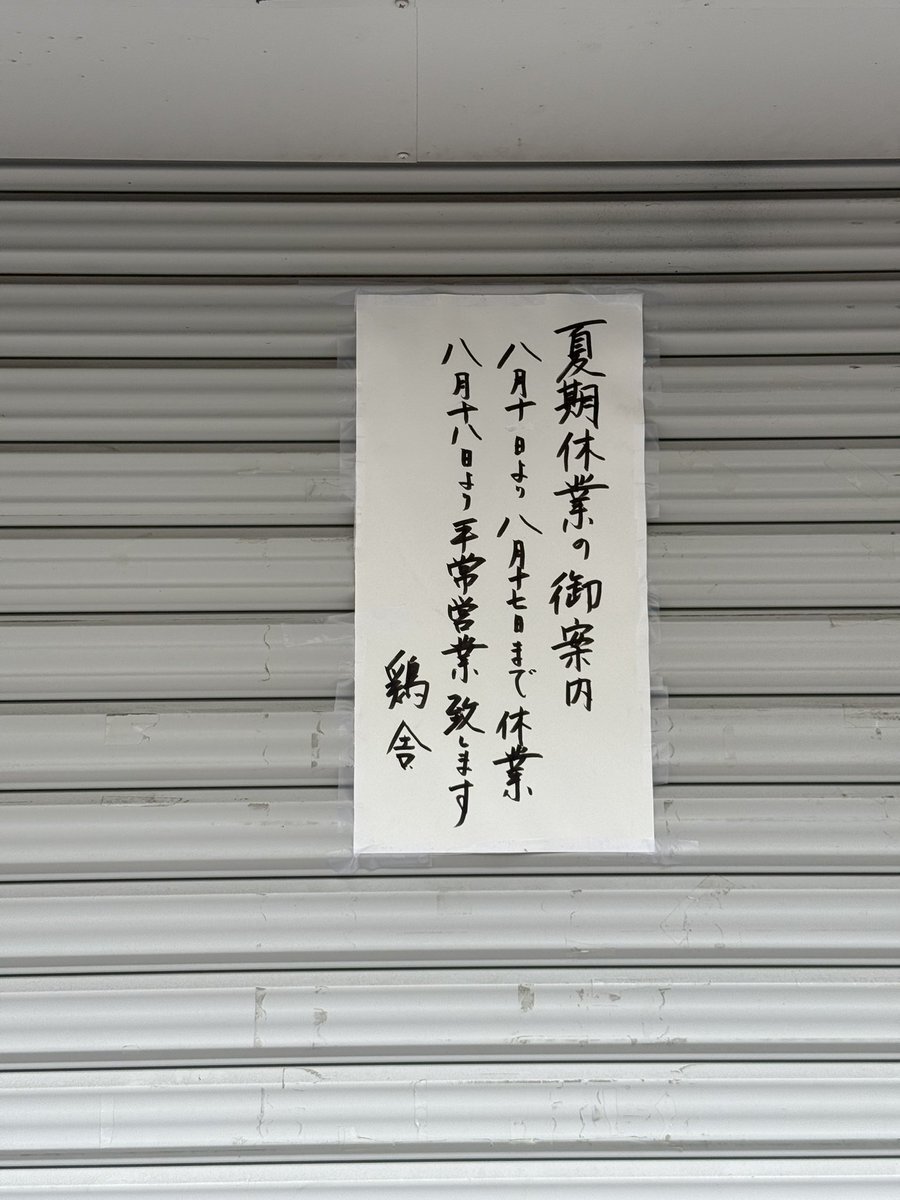 夏期休業の御案内
八月十日より八月十七日まで休業
八月十八日より平常営業致します
鶏舎